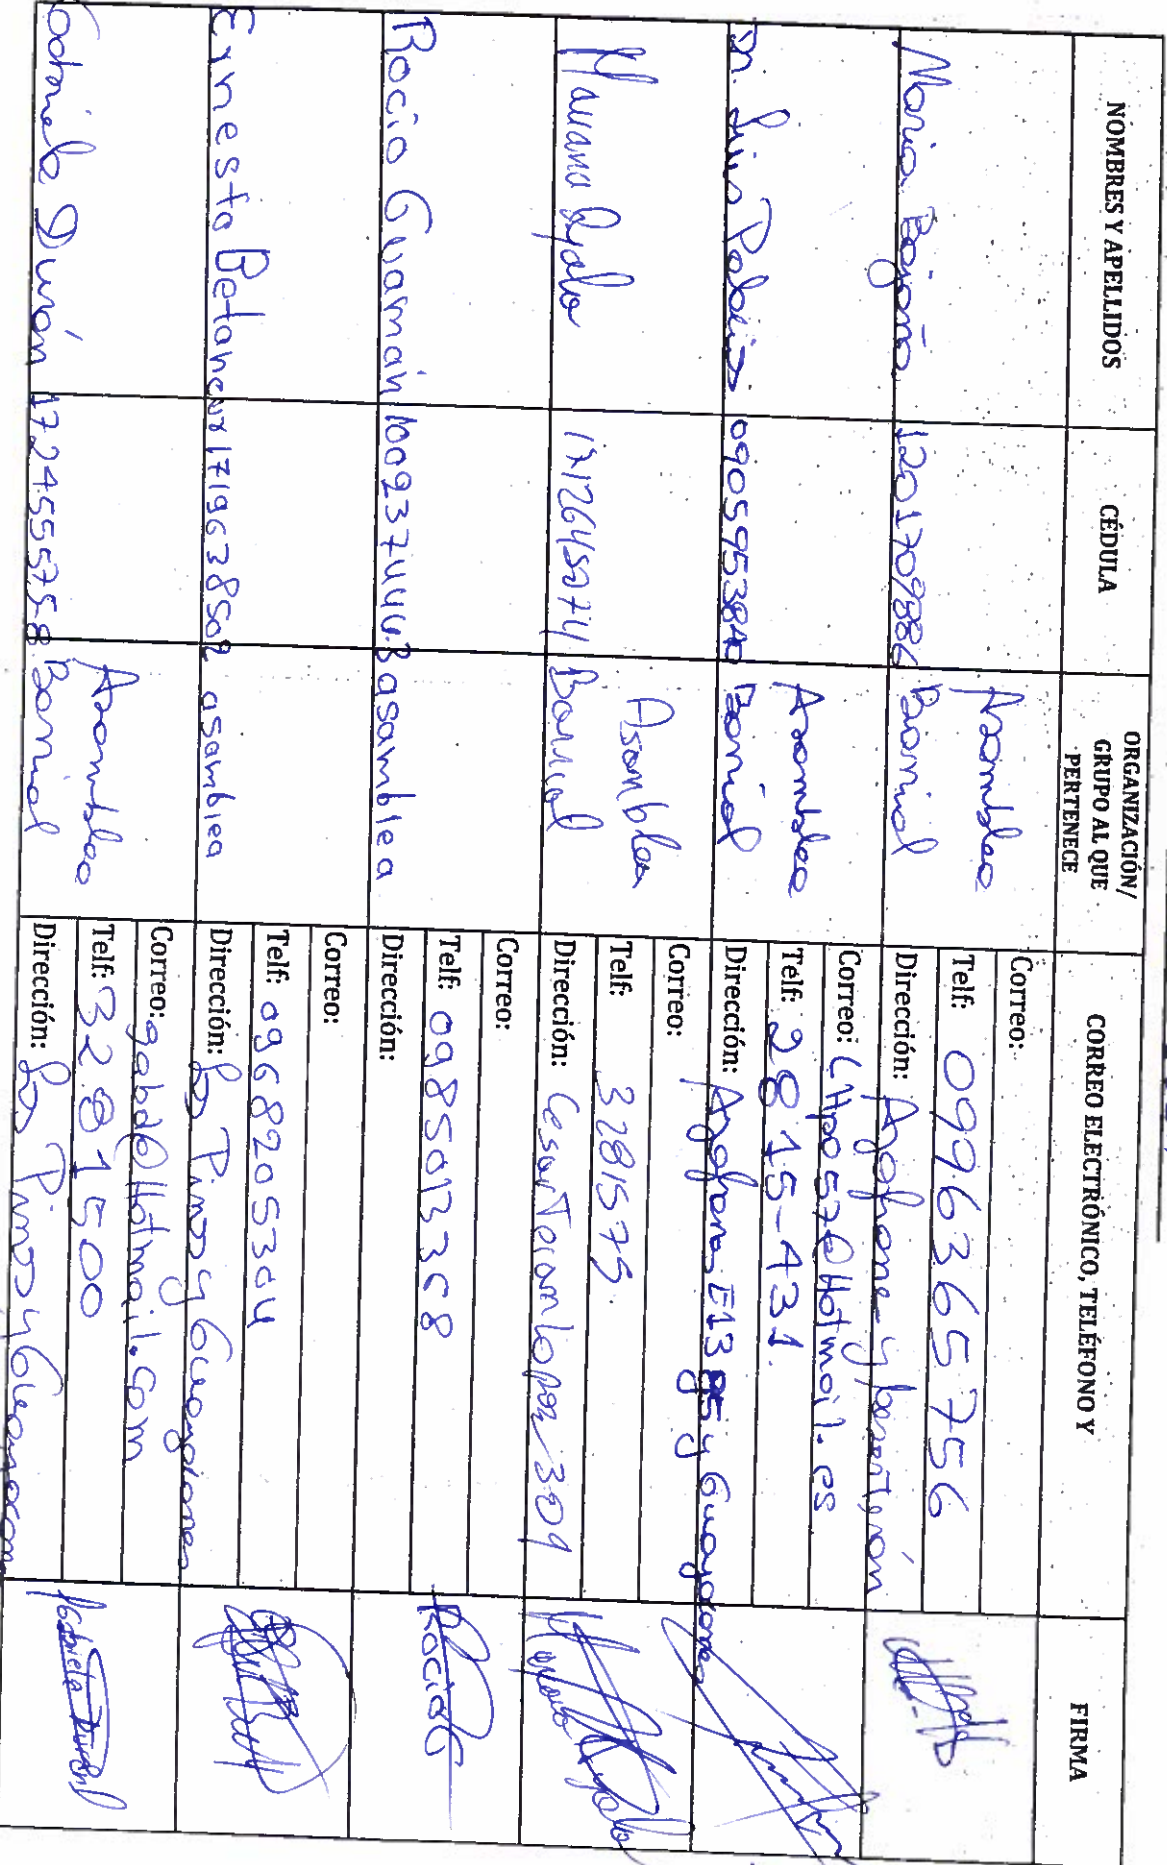 NOMBRES Y APELLIDOS
CÉDULA
ORGANIZACIÓN/
GRUPO AL QUE
PERTENECE
CORREO ELECTRÓNICO, TELÉFONO Y
FIRMA
Maria
1201709886
Asamblea
Barrial
Correo:
Telf: 0996365756
Dirección: y
Dr. Luis Palacios
0905953840
Asamblea
Barrial
Correo: LHpo57@Hotmail.es
Telf: 2815-431
Dirección: E13 y Guayacanes
Mariana Ayala
1712645074
Asamblea
Barrial
Correo:
Telf: 3281575
Dirección: Cesar Teran Lopez 309
Mariana Ayala
Rocío Guamán
100237444.3
asamblea
Correo:
Telf: 0985013368
Dirección:
Rocío G
Ernesto Betancur
1719638502
asamblea
Correo:
Telf: 0968205304
Dirección: Los Pinos y Guayacanes
Gabriela Durán
172455575-8
Asamblea
Barrial
Correo: gabd@Hotmail.com
Telf: 3281500
Dirección: Los Pinos y
Gabriela Durán